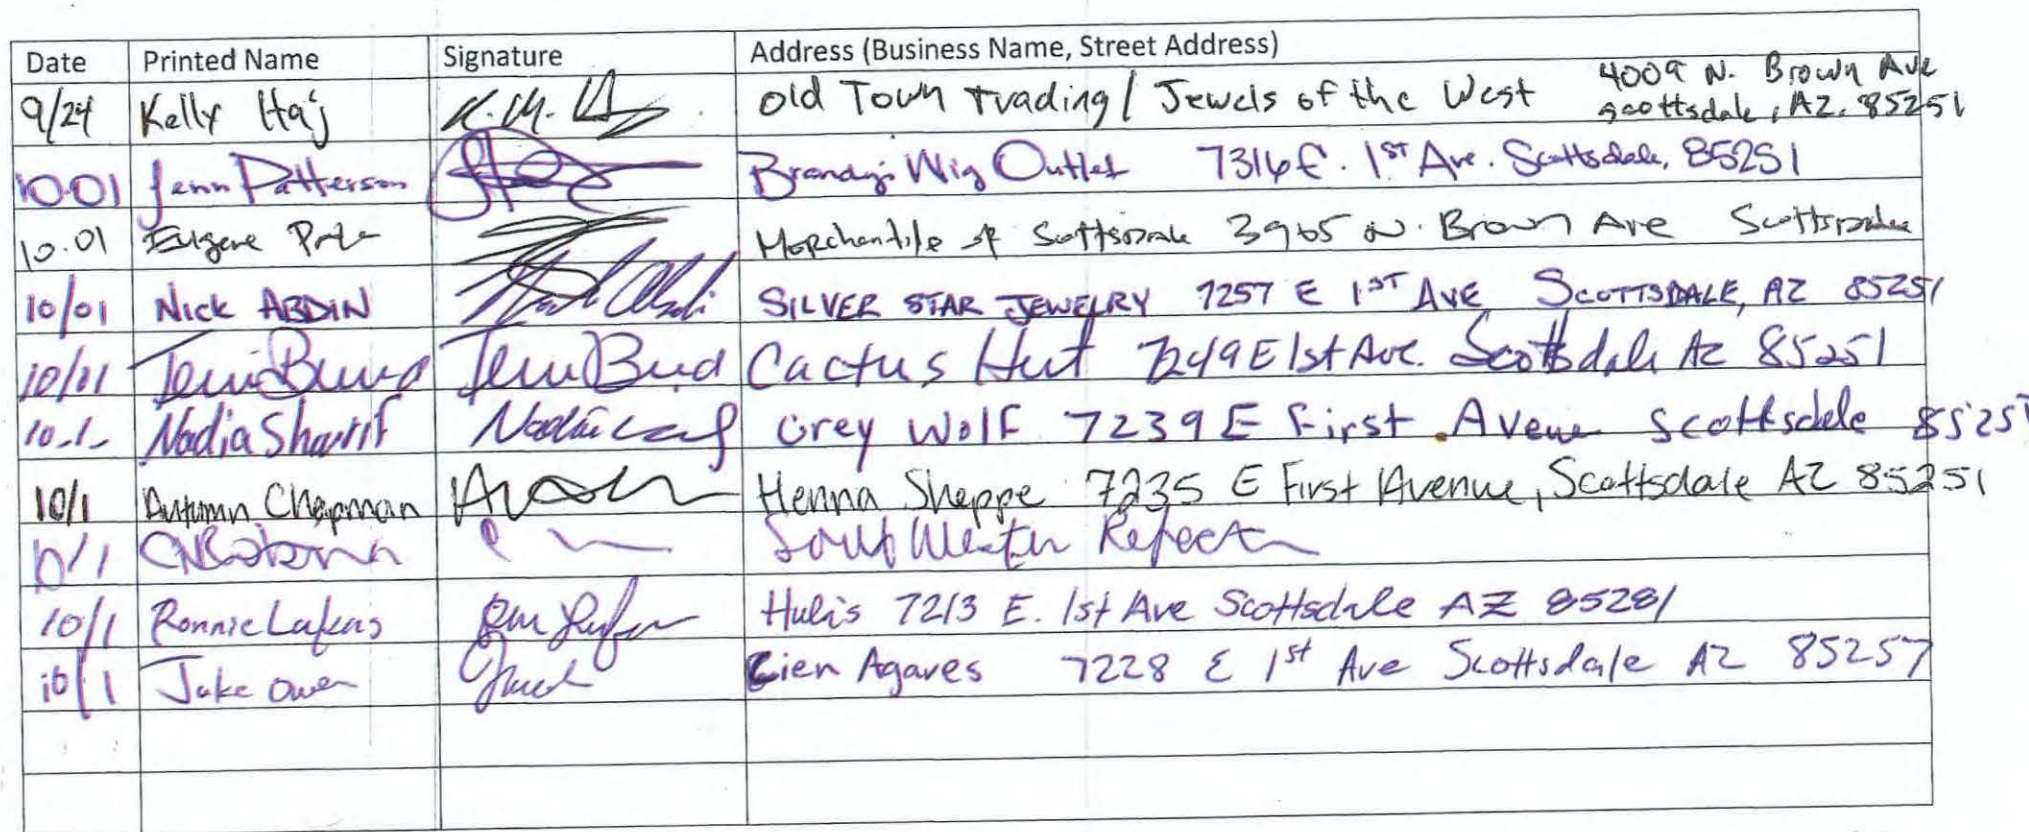 Date Printed Name Signature Address (Business Name, Street Address)
9/24 Kelly Haj K.M. Old Town Trading / Jewels of the West 4009 N. Brown Ave
Scottsdale, AZ. 85251
10.01 Jenn Patterson Brandy's Wig Outlet 7316 E. 1ST Ave. Scottsdale, 85251
10.01 Eugene Merchantile of Scottsdale 3965 N. Brown Ave Scottsdale
10/01 Nick ABDIN SILVER STAR JEWELRY 7257 E 1ST AVE SCOTTSDALE, AZ 85251
10/01 Cactus Hut 7249 E 1st Ave. Scottsdale Az 85251
10.1. Nadia Sharif Nadia Grey Wolf 7239 E First Avenue Scottsdale 85251
10/1 Autumn Chapman Henna Shoppe 7235 E First Avenue, Scottsdale AZ 85251
10/1
10/1 Ronnie Hulis 7213 E. 1st Ave Scottsdale AZ 85281
10/1 Jake Owen Cien Agaves 7228 E 1st Ave Scottsdale AZ 85257